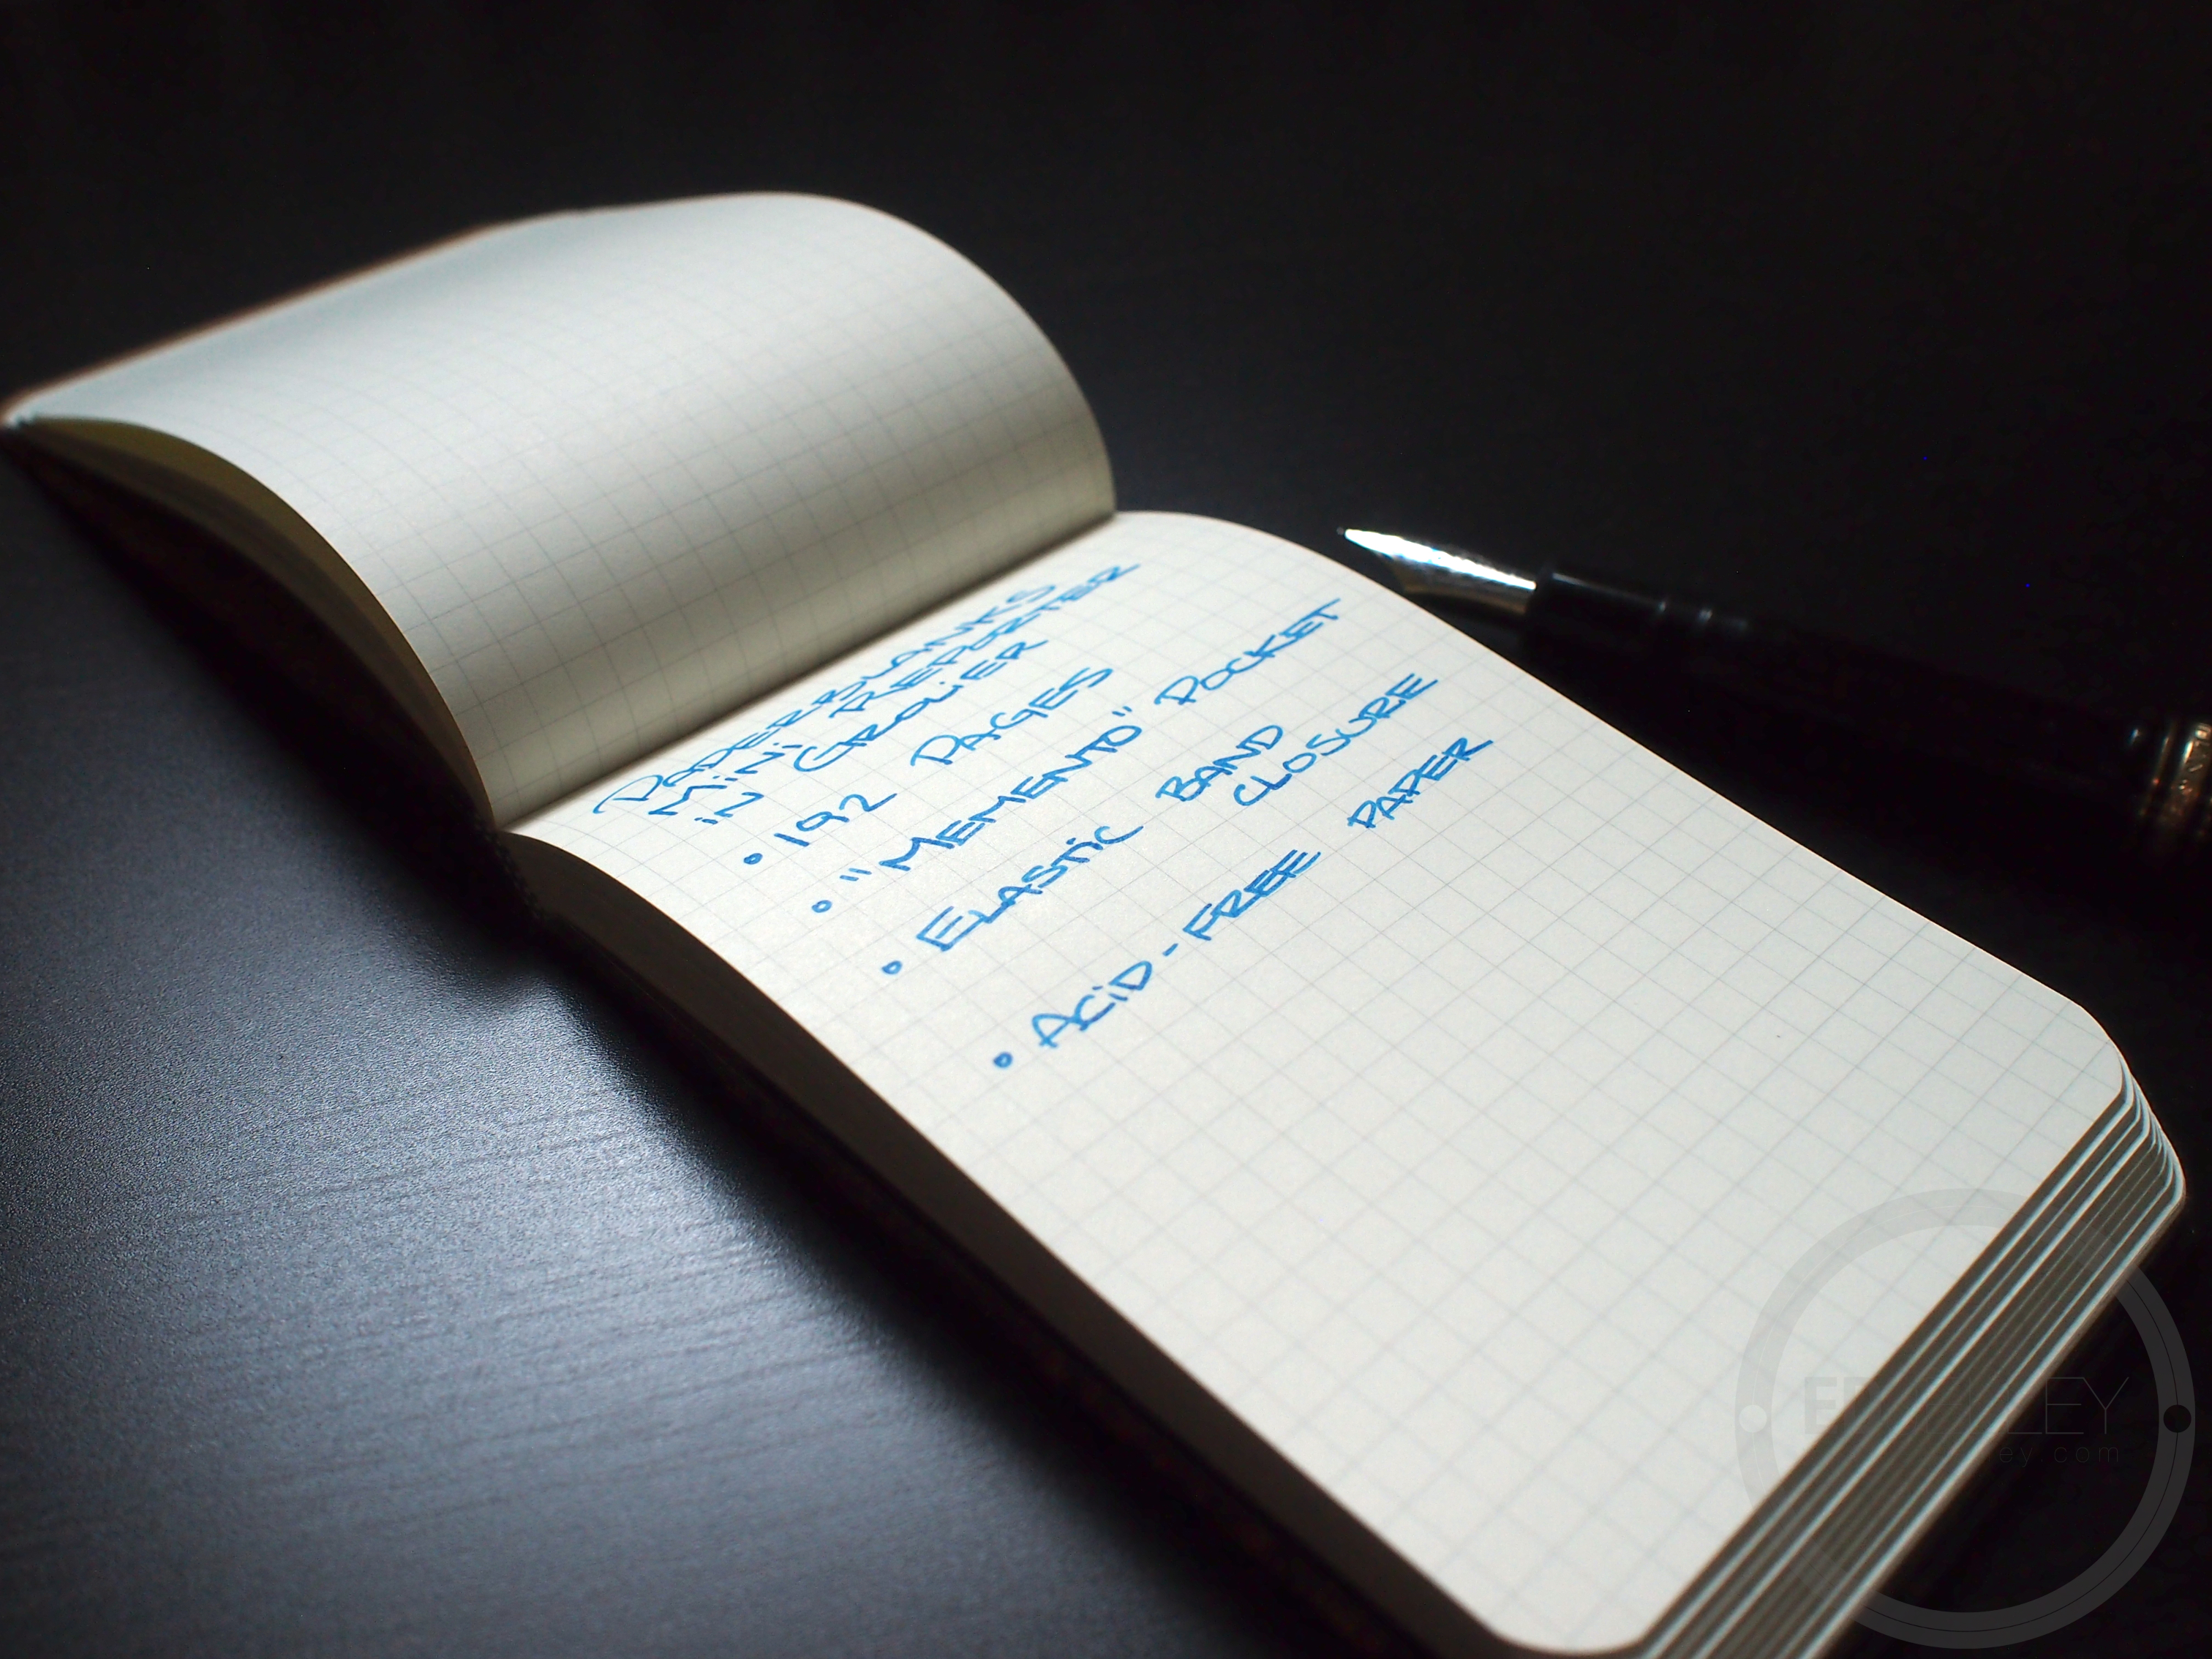 PAPERBLANKS
MiNi REPORTER
iN GROLiER
• 192 PAGES
• "MEMENTO" POCKET
• ELASTiC BAND
CLOSURE
• ACiD-FREE PAPER